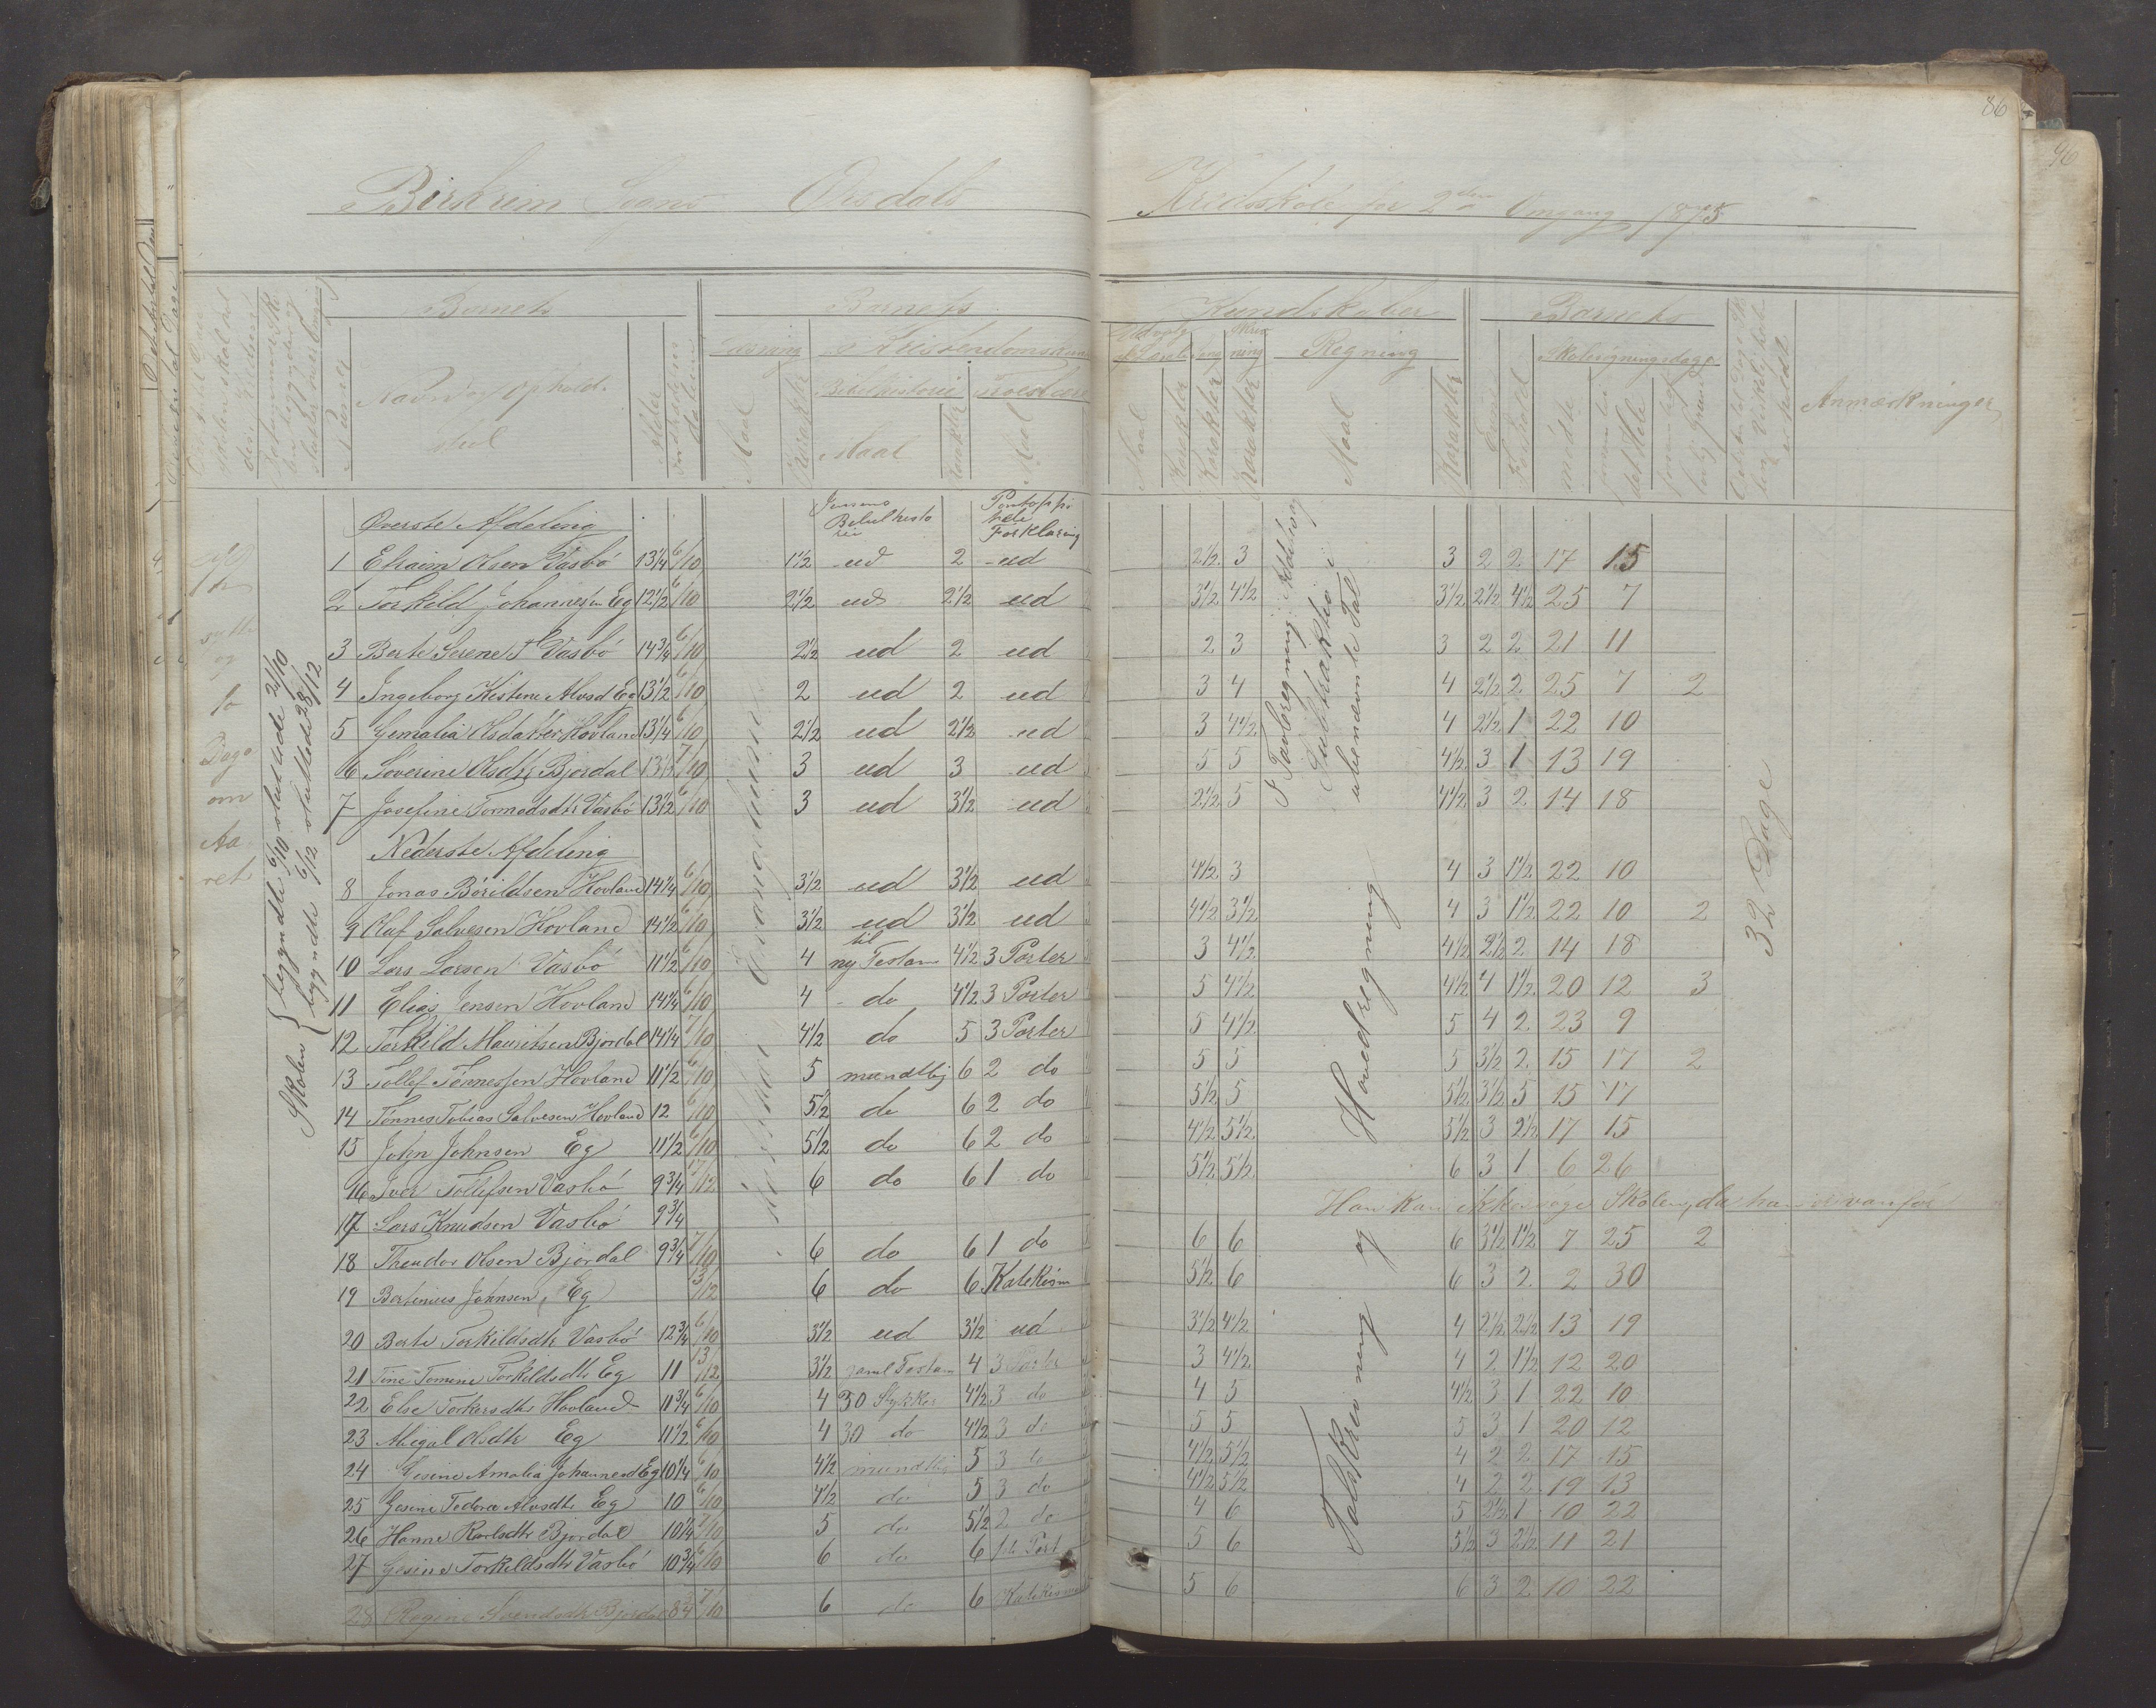 86
96
Birkrem Sogns Ørsdals
Kredsskole for 2den Omgang 1875
Barnets
Barnets
Kundskaber
Barnets
Læsning
Kristendomskund
Regning
Skolesøgningsdage
Navn og Opholds-
sted
Alder
Bibelhistorie
Troeslære
Maal
Karakter
Maal
Karakter
Maal
Maal
Karakter
Karakter
Karakter
Maal
Karakter
Evner
Forhold
mødte
forsømte
det Hele
Anmærkninger
Skolen begyndte 6/10 sluttede 21/10
begyndte 6/12 sluttede 23/12
Øverste Afdeling
Jensens Bibelhistorie
Pontoppi Forklaring
I Tavleregning: Addition Subtraktion i ubenævnte Tal
1 Efraim Olsen Vasbø 13 1/4 6/10 1 1/2 ud 2 ud 2 1/2 3 3 2 2 17 15
2 Torkild Johannesen Eg 12 1/2 6/10 2 1/2 ud 2 1/2 ud 3 1/2 4 1/2 3 1/2 2 1/2 4 1/2 25 7
3 Berte Serene T Vasbø 14 3/4 6/10 2 1/2 ud 2 ud 2 3 3 2 2 21 11
4 Ingeborg Kistine Alvsd Eg 13 1/2 6/10 2 ud 2 ud 3 4 4 2 1/2 2 25 7 2
5 Gemalia Olsdatter Hovland 13 1/4 6/10 2 1/2 ud 2 1/2 ud 3 4 1/2 4 2 1/2 1 22 10
6 Soverine Olsdtr Bjordal 13 1/2 7/10 3 ud 3 ud 5 5 4 1/2 3 1 13 19
7 Josefine Tormodsdtr Vasbø 13 1/2 6/10 3 ud 3 1/2 ud 2 1/2 5 4 1/2 3 2 14 18
Nederste Afdeling
32 Dage
Hovedregning
og
Talskrivning
8 Jonas Børildsen Hovland 14 1/4 6/10 3 1/2 ud 3 1/2 ud 4 1/2 3 4 3 1 1/2 22 10
9 Olaf Salvesen Hovland 14 1/2 6/10 3 1/2 ud 3 1/2 ud 4 1/2 3 1/2 4 3 1 1/2 22 10 2
10 Lars Larsen Vasbø 11 1/2 6/10 4 til ny Testam 4 1/2 3 Parter 3 4 1/2 4 1/2 2 1/2 2 14 18
11 Elias Jensen Hovland 14 1/4 6/10 4 do 4 1/2 3 Parter 5 4 1/2 4 1/2 4 1 1/2 20 12 3
12 Torkild Mauritsen Bjordal 14 1/4 7/10 4 1/2 do 5 3 Parter 5 4 1/2 5 4 2 23 9
13 Tollef Tønnessen Hovland 11 1/2 6/10 5 mundtlig 6 2 do 5 5 5 3 1/2 2 15 17 2
14 Tønnes Tobias Salvesen Hovland 12 6/10 5 1/2 do 6 2 do 5 1/2 5 5 1/2 3 1/2 5 15 17
15 John Johnsen Eg 11 1/2 6/10 5 1/2 do 6 2 do 4 1/2 5 1/2 5 1/2 3 2 1/2 17 15
16 Iver Tollefsen Vasbø 9 3/4 17/12 6 do 6 1 do 5 1/2 5 1/2 6 3 1 6 26
17 Lars Knudsen Vasbø 9 3/4 Han kan ikke søge Skolen, da han er vanfør
18 Theodor Olsen Bjordal 9 3/4 7/10 6 do 6 1 do 6 6 6 3 1/2 1 1/2 7 25 2
19 Bertinius Johnsen, Eg 13/12 6 do 6 Katekism 5 1/2 6 6 3 2 2 30
20 Berte Torkildsdtr Vasbø 12 3/4 6/10 3 1/2 ud 3 1/2 ud 3 1/2 4 1/2 4 2 1/2 2 1/2 13 19
21 Tine Tomine Torkildsdtr Eg 11 13/12 3 1/2 gaml Testam 4 3 Parter 3 4 1/2 4 2 1 1/2 12 20
22 Else Torkersdtr Hovland 11 3/4 6/10 4 30 Stykker 4 1/2 3 do 4 5 4 1/2 3 1 22 10
23 Abigal Olsdtr Eg 11 1/2 6/10 4 30 do 4 1/2 3 do 5 5 5 3 1 20 12
24 Gesine Amalia Johannesd Eg 10 1/4 6/10 4 1/2 mundtlig 5 3 do 4 1/2 5 1/2 4 2 2 17 15
25 Gesine Tedora Alvsdtr Eg 10 6/10 4 1/2 do 5 3 do 4 1/2 5 1/2 4 2 2 19 13
26 Hanne Karlsdtr Bjordal 10 1/4 7/10 5 do 5 1/2 2 do 4 6 5 2 1/2 1 10 22
27 Gesine Torkildsdtr Vasbø 10 3/4 6/10 6 do 6 1ste Part 5 6 5 1/2 3 2 1/2 11 21
28 Regine Svendsdtr Bjordal 8 3/4 7/10 6 do 6 Katekisme 5 6 6 3 2 10 22